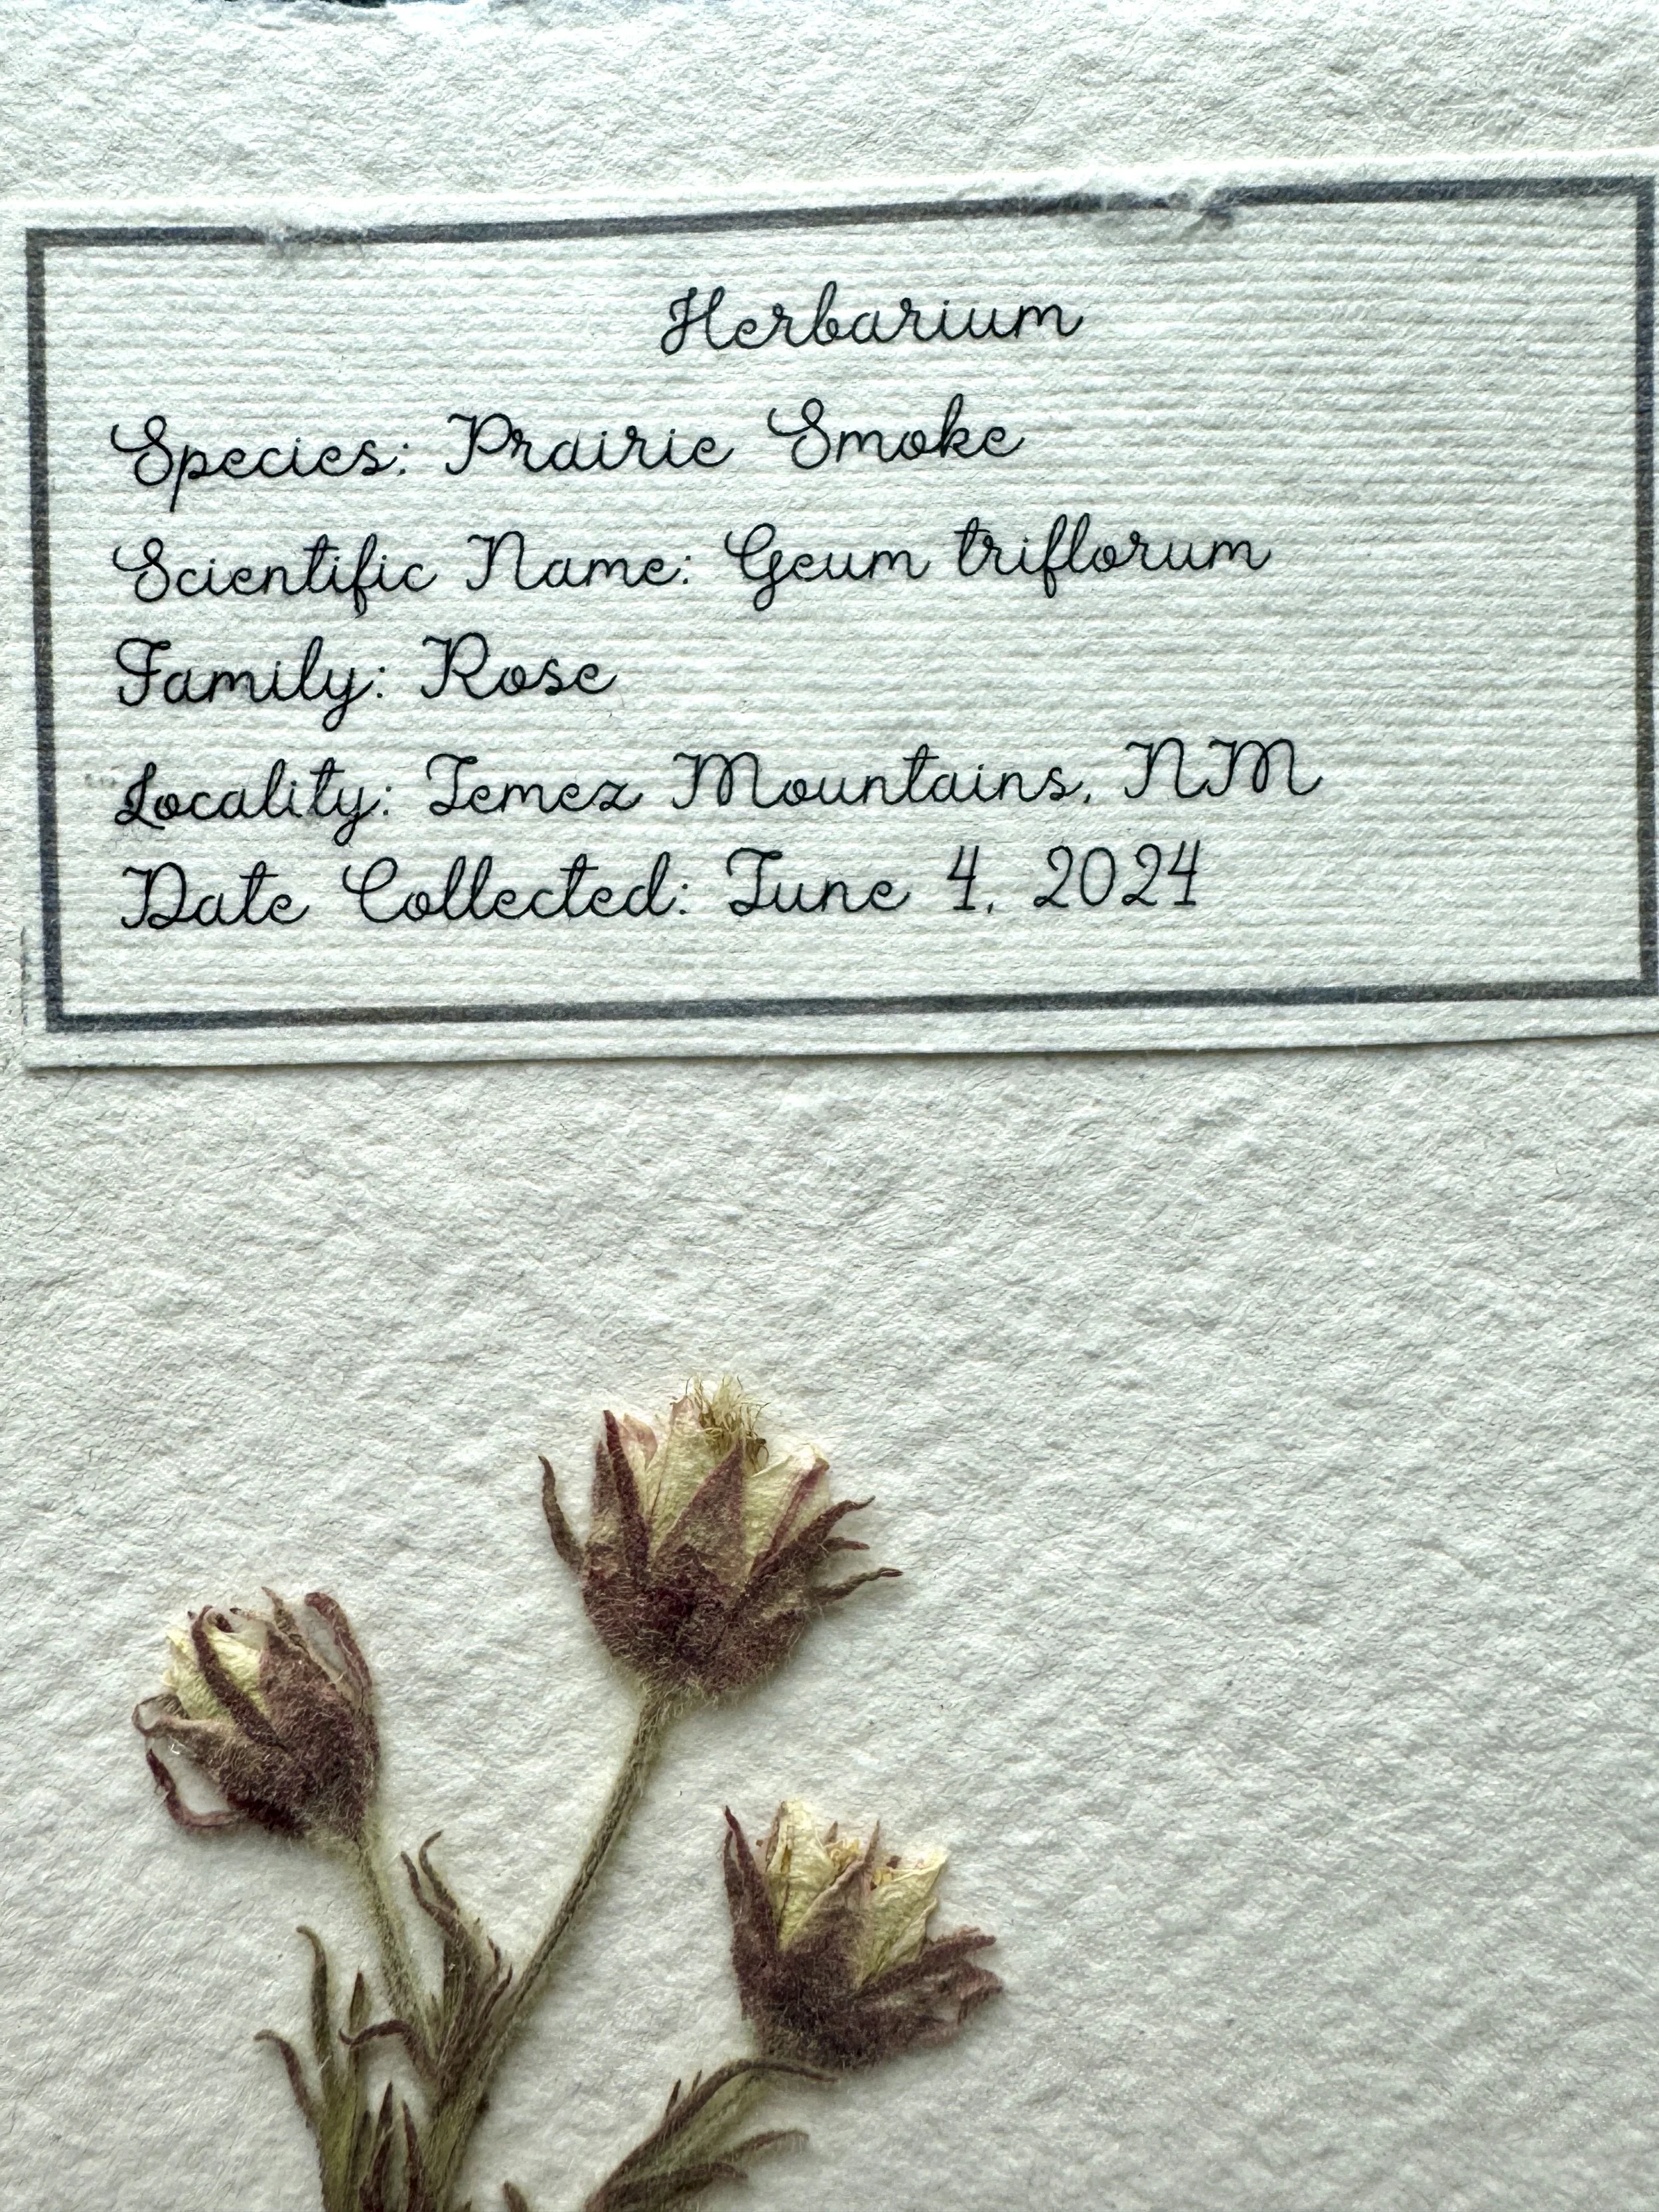 Herbarium
Species: Prairie Smoke
Scientific Name: Geum triflorum
Family: Rose
Locality: Jemez Mountains, NM
Date Collected: June 4, 2024